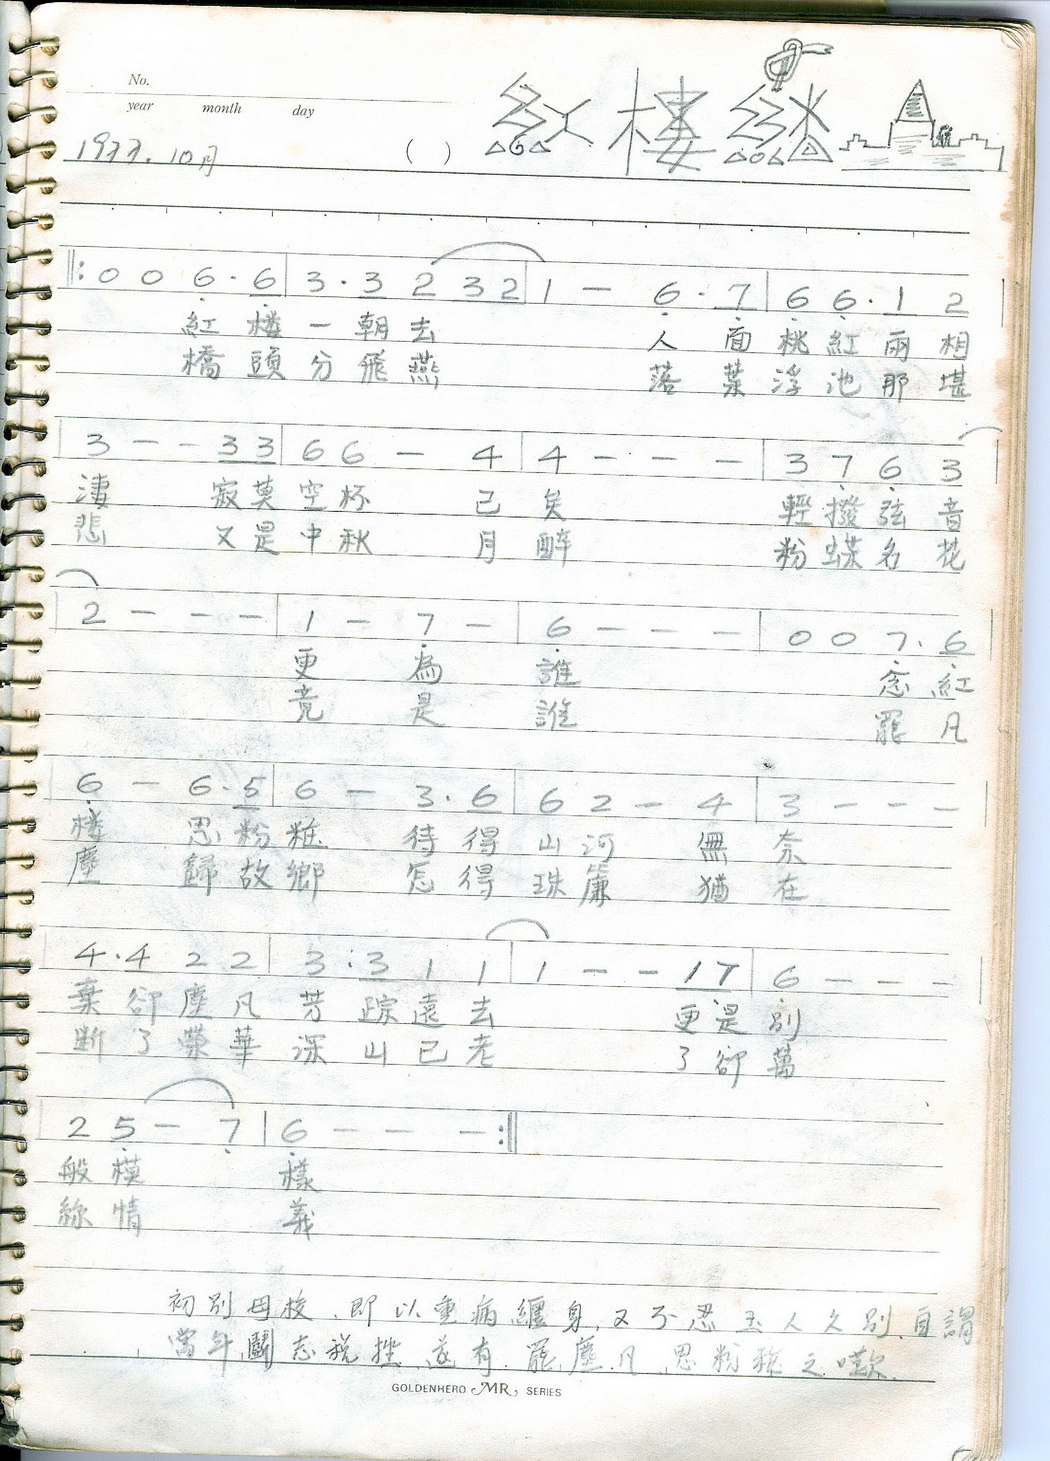 No.
year month day
1977.10月 ( )
紅樓
‖: 0 0 6 · 6 | 3 · 3 2 3 2 | 1 — 6 · 7 | 6 6 · 1 2
紅樓一朝去 人面桃紅兩相
橋頭分飛燕 落葉浮池那堪
3 — — 3 3 | 6 6 — 4 | 4 — — — | 3 7 6 3
淒 寂莫空杯 已矣 輕撥弦音
悲 又是中秋 月醉 粉蝶名花
2 — — — | 1 — 7 — | 6 — — — | 0 0 7 · 6
更為誰 念紅
竟是誰 罷凡
6 — 6 · 5 | 6 — 3 · 6 | 6 2 — 4 | 3 — — —
樓 思粉粧 待得山河 無奈
塵 歸故鄉 怎得珠簾 猶在
4 · 4 2 2 | 3 · 3 1 1 | 1 — — 1 7 | 6 — — —
棄卻塵凡 芳踪遠去 更是別
斷了榮華 深山已老 了卻萬
2 5 — 7 | 6 — — — :‖
般模樣
絲情義
初別母校,即以重病纏身,又不忍玉人久別,自謂
當年鬪志稅挫,遂有罷塵凡思粉粧之嘆.
GOLDENHERO MR, SERIES